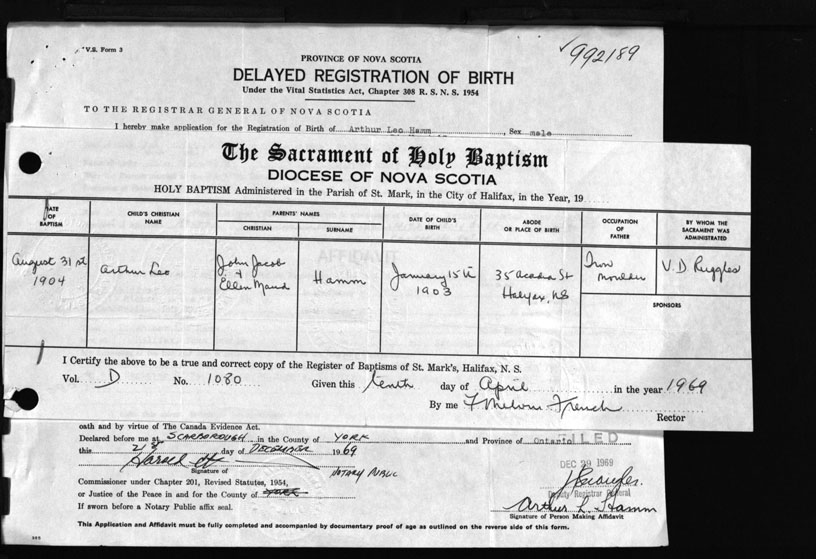 V.S. Form 3
✓992189
PROVINCE OF NOVA SCOTIA
DELAYED REGISTRATION OF BIRTH
Under the Vital Statistics Act, Chapter 308 R. S. N. S. 1954
TO THE REGISTRAR GENERAL OF NOVA SCOTIA
I hereby make application for the Registration of Birth of Arthur Leo Hamm, Sex male
The Sacrament of Holy Baptism
DIOCESE OF NOVA SCOTIA
HOLY BAPTISM Administered in the Parish of St. Mark, in the City of Halifax, in the Year, 19
DATE OF BAPTISM
CHILD'S CHRISTIAN NAME
PARENTS' NAMES
CHRISTIAN
SURNAME
DATE OF CHILD'S BIRTH
ABODE OR PLACE OF BIRTH
OCCUPATION OF FATHER
BY WHOM THE SACRAMENT WAS ADMINISTRATED
August 31st 1904
Arthur Leo
John Jacob + Ellen Maud
Hamm
January 15th 1903
35 Acadia St Halifax, NS
Iron Moulder
V. D. Ruggles
SPONSORS
I Certify the above to be a true and correct copy of the Register of Baptisms of St. Mark's, Halifax, N. S.
Vol. D No. 1080 Given this tenth day of April in the year 1969
By me F Melvin French
Rector
oath and by virtue of The Canada Evidence Act.
Declared before me at SCARBOROUGH in the County of YORK and Province of Ontario
FILED
this day of DECEMBER 1969
DEC 29 1969
Signature of
NOTARY PUBLIC
Commissioner under Chapter 201, Revised Statutes, 1954,
or Justice of the Peace in and for the County of
Deputy Registrar General
If sworn before a Notary Public affix seal.
Arthur L. Hamm
Signature of Person Making Affidavit
This Application and Affidavit must be fully completed and accompanied by documentary proof of age as outlined on the reverse side of this form.